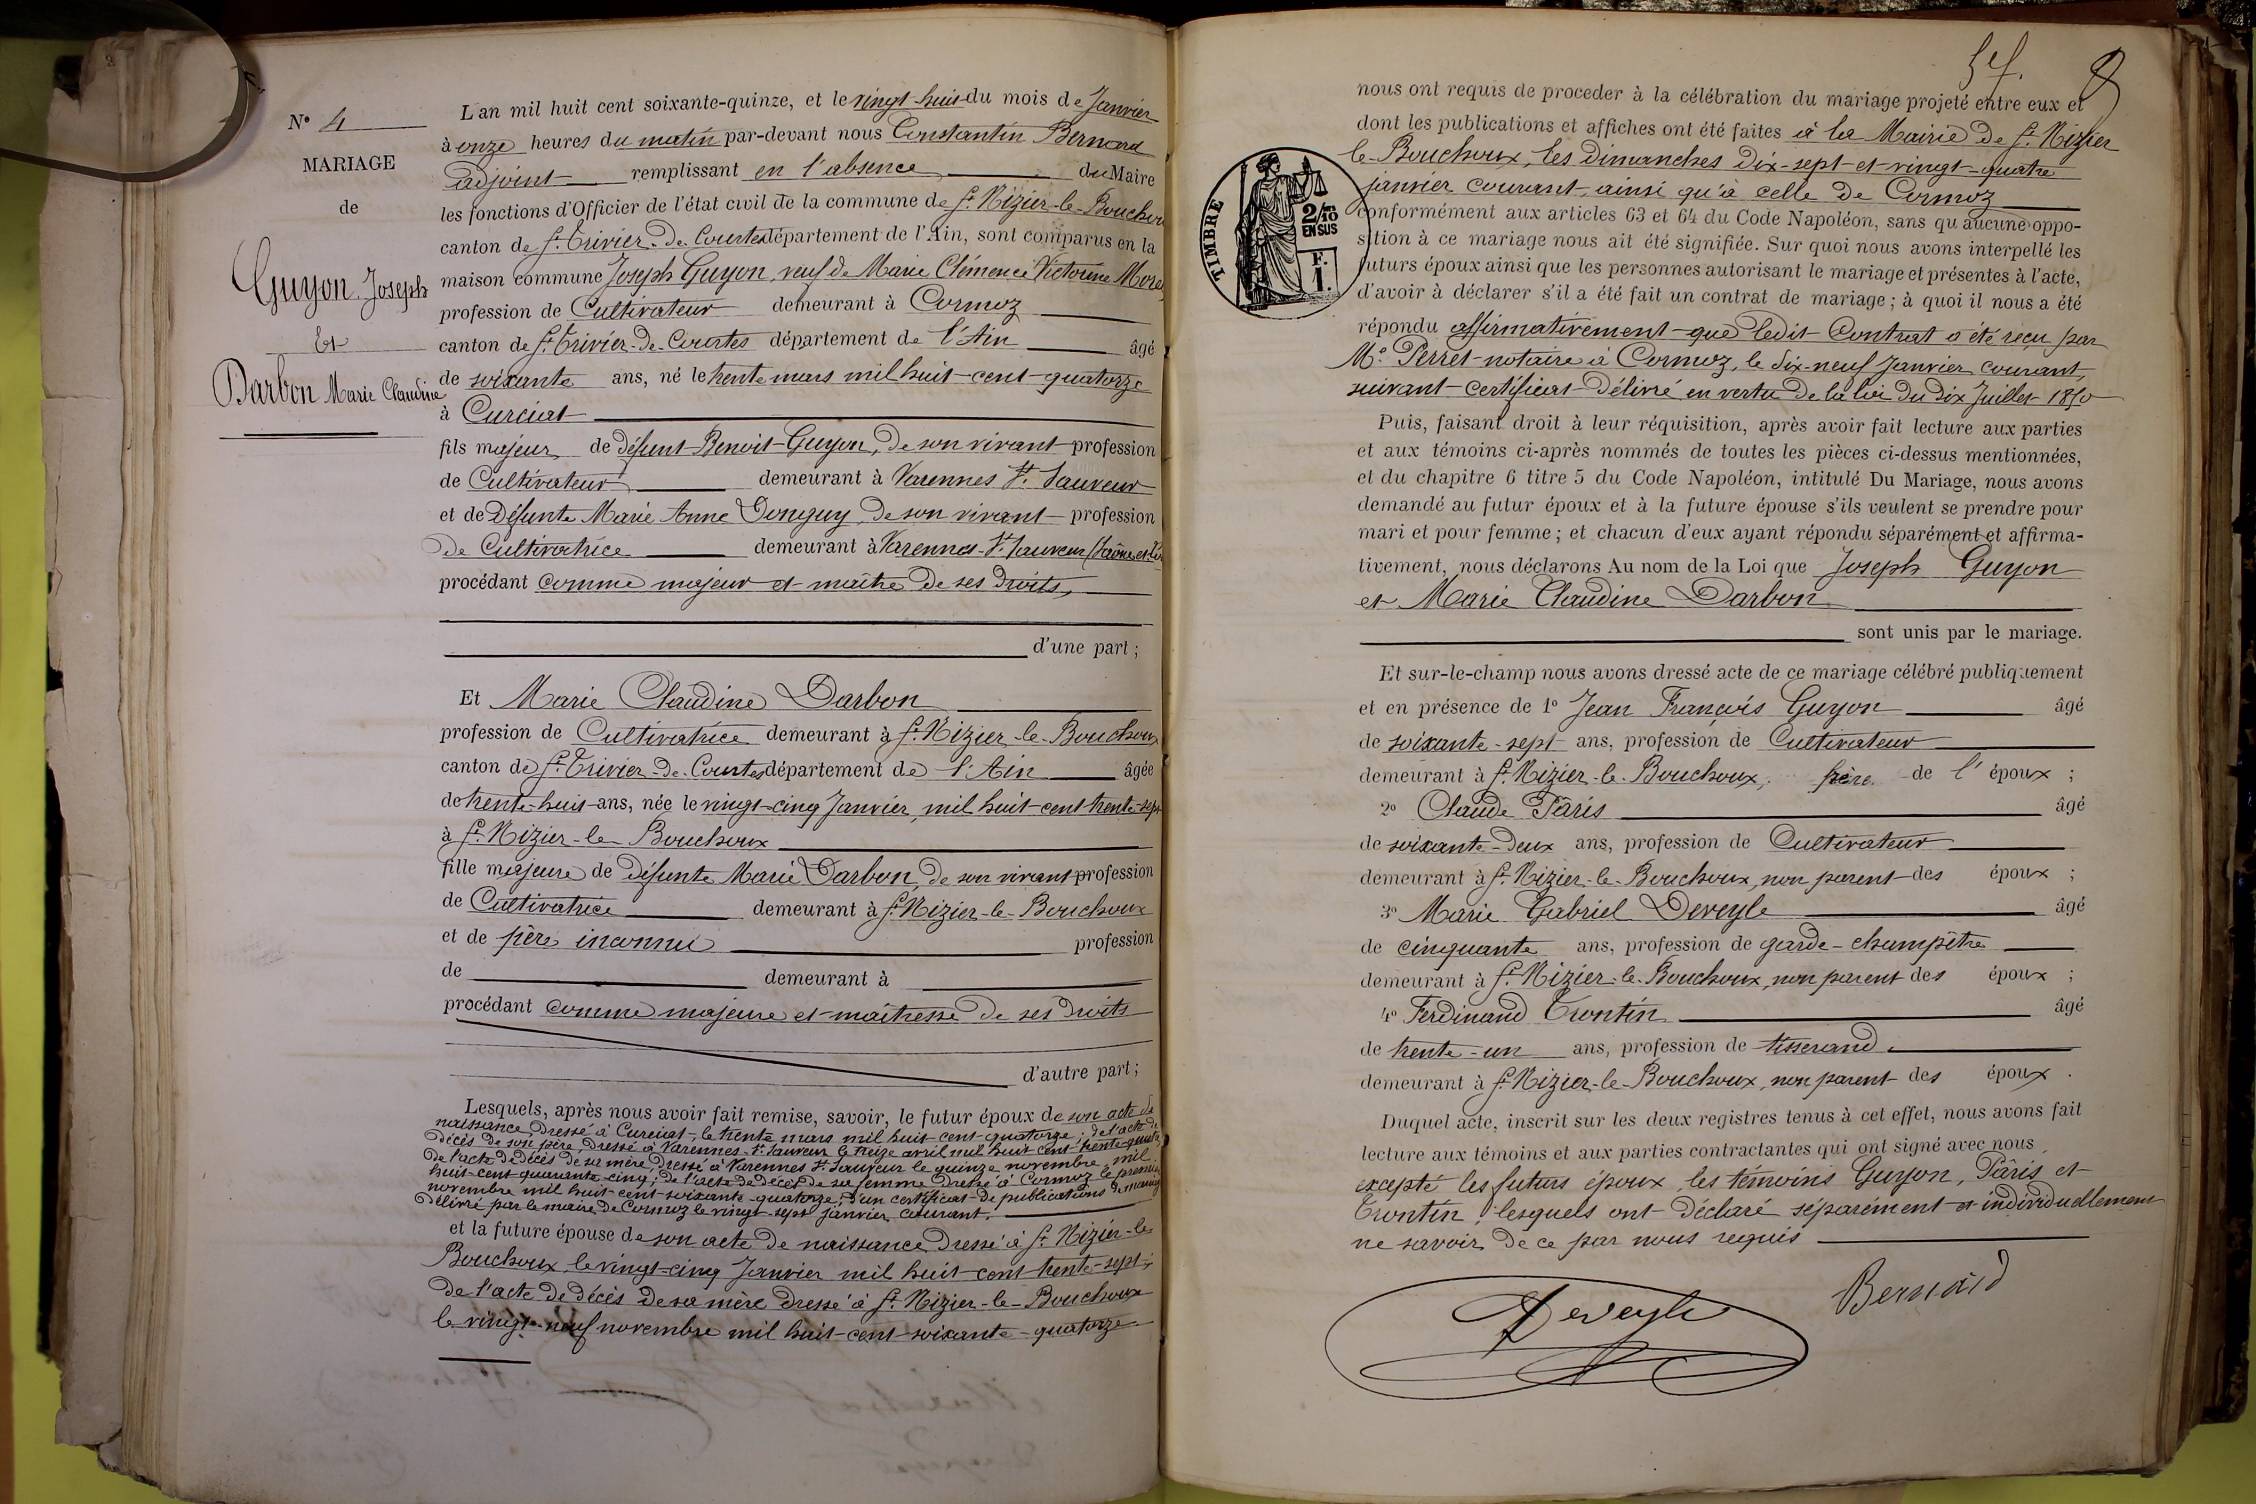 N° 4
MARIAGE
de
Guyon Joseph
Et
Darbon Marie Claudine
L'an mil huit cent soixante-quinze, et le vingt-huit du mois de Janvier
à onze heures du matin par-devant nous Constantin Bernard
adjoint remplissant en l'absence du Maire
les fonctions d'Officier de l'état civil de la commune de St Nizier-le-Bouchoux
canton de St Trivier-de-Courtes département de l'Ain, sont comparus en la
maison commune Joseph Guyon, veuf de Marie Clémence Victorine Morel
profession de Cultivateur demeurant à Cormoz
canton de St Trivier-de-Courtes département de l'Ain âgé
de soixante ans, né le trente mars mil huit-cent-quatorze
à Curciat
fils majeur de défunt Benoit Guyon, de son vivant profession
de Cultivateur demeurant à Varennes St Sauveur
et de Défunte Marie Anne Donguy, de son vivant profession
de Cultivatrice demeurant à Varennes-St Sauveur (Saône-et-
procédant comme majeur et maître de ses droits,
d'une part ;
Et Marie Claudine Darbon
profession de Cultivatrice demeurant à St Nizier-le-Bouchoux
canton de St Trivier-de-Courtes département de l'Ain âgée
de trente-huit ans, née le vingt-cinq Janvier mil huit-cent trente-sept
à St Nizier-le-Bouchoux
fille majeure de défunte Marie Darbon, de son vivant profession
de Cultivatrice demeurant à St Nizier-le-Bouchoux
et de père inconnu profession
de demeurant à
procédant comme majeure et maîtresse de ses droits
d'autre part ;
Lesquels, après nous avoir fait remise, savoir, le futur époux de son acte de
naissance dressé à Curciat, le trente mars mil huit-cent-quatorze ; de l'acte de
décès de son père, dressé à Varennes-St Sauveur le treize avril mil huit-cent-trente-quatre
de l'acte de décès de sa mère, dressé à Varennes St Sauveur le quinze novembre mil
huit-cent-quarante-cinq ; de l'acte de décès de sa femme dressé à Cormoz le premier
novembre mil huit-cent-soixante-quatorze ; d'un certificat de publications de mariage
délivré par le maire de Cormoz le vingt-sept janvier courant.
et la future épouse de son acte de naissance dressé à St Nizier-le
Bouchoux le vingt-cinq Janvier mil huit-cent-trente-sept ;
de l'acte de décès de sa mère dressé à St Nizier-le-Bouchoux
le vingt-neuf novembre mil huit-cent-soixante-quatorze
8
TIMBRE
2/10 EN SUS
F. 1.
nous ont requis de proceder à la célébration du mariage projeté entre eux et
dont les publications et affiches ont été faites à la Mairie de St Nizier
le-Bouchoux, les Dimanches dix-sept et vingt-quatre
janvier courant, ainsi qu'à celle de Cormoz
conformément aux articles 63 et 64 du Code Napoléon, sans qu'aucune oppo-
sition à ce mariage nous ait été signifiée. Sur quoi nous avons interpellé les
futurs époux ainsi que les personnes autorisant le mariage et présentes à l'acte,
d'avoir à déclarer s'il a été fait un contrat de mariage ; à quoi il nous a été
répondu affirmativement que ledit Contrat a été reçu par
Me Perret notaire à Cormoz, le dix-neuf Janvier courant,
suivant certificat délivré en vertu de la loi du dix Juillet 1850
Puis, faisant droit à leur réquisition, après avoir fait lecture aux parties
et aux témoins ci-après nommés de toutes les pièces ci-dessus mentionnées,
et du chapitre 6 titre 5 du Code Napoléon, intitulé Du Mariage, nous avons
demandé au futur époux et à la future épouse s'ils veulent se prendre pour
mari et pour femme ; et chacun d'eux ayant répondu séparément et affirma-
tivement, nous déclarons Au nom de la Loi que Joseph Guyon
et Marie Claudine Darbon
sont unis par le mariage.
Et sur-le-champ nous avons dressé acte de ce mariage célébré publiquement
et en présence de 1° Jean François Guyon âgé
de soixante-sept ans, profession de Cultivateur
demeurant à St Nizier-le-Bouchoux, frère de l'époux ;
2° Claude Pâris âgé
de soixante-deux ans, profession de Cultivateur
demeurant à St Nizier-le-Bouchoux, non parent des époux ;
3° Marie Gabriel Deveyle âgé
de cinquante ans, profession de garde-champêtre
demeurant à St Nizier-le-Bouchoux, non parent des époux ;
4° Ferdinand Trontin âgé
de trente-un ans, profession de tisserand
demeurant à St Nizier-le-Bouchoux, non parent des époux.
Duquel acte, inscrit sur les deux registres tenus à cet effet, nous avons fait
lecture aux témoins et aux parties contractantes qui ont signé avec nous
excepté les futurs époux, les témoins Guyon, Pâris et
Trontin, lesquels ont déclaré séparément et individuellement
ne savoir de ce par nous requis
Deveyle
Bernard